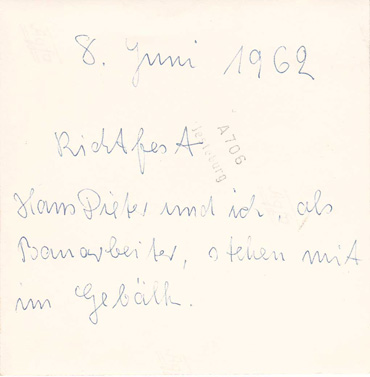 8. Juni 1962
Richtfest
A706
Hans Dieter und ich, als
Bauarbeiter, stehen mit
im Gebälk.